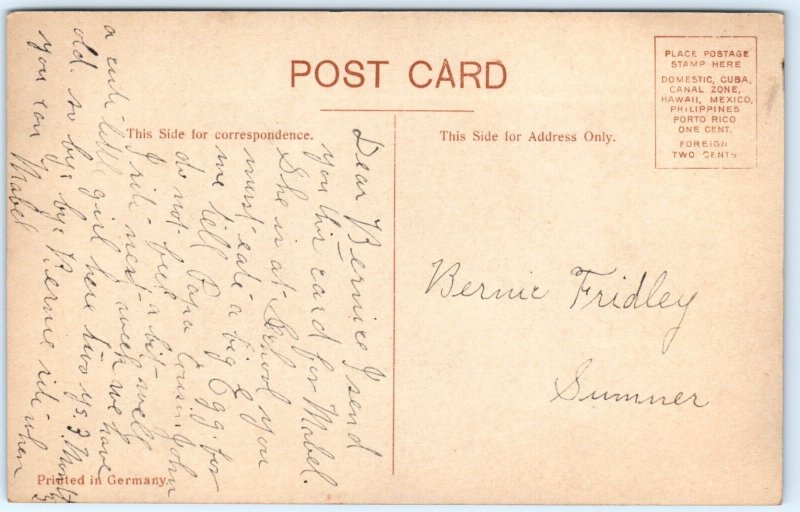 POST CARD
PLACE POSTAGE
STAMP HERE
DOMESTIC, CUBA,
CANAL ZONE,
HAWAII, MEXICO,
PHILIPPINES
PORTO RICO
ONE CENT.
FOREIGN
TWO CENTS
This Side for correspondence.
This Side for Address Only.
Dear Bernice I send
you this card for Mabel.
She is at School you
must eate a big Egg for
me tell Papa Cousin John
do not feel a bit well
I rite next week we have
a cute little girl here two ys. 3 Month
old. so by: by: Bernie rite when
you can
Mabel
Bernie Fridley
Sumner
Printed in Germany.